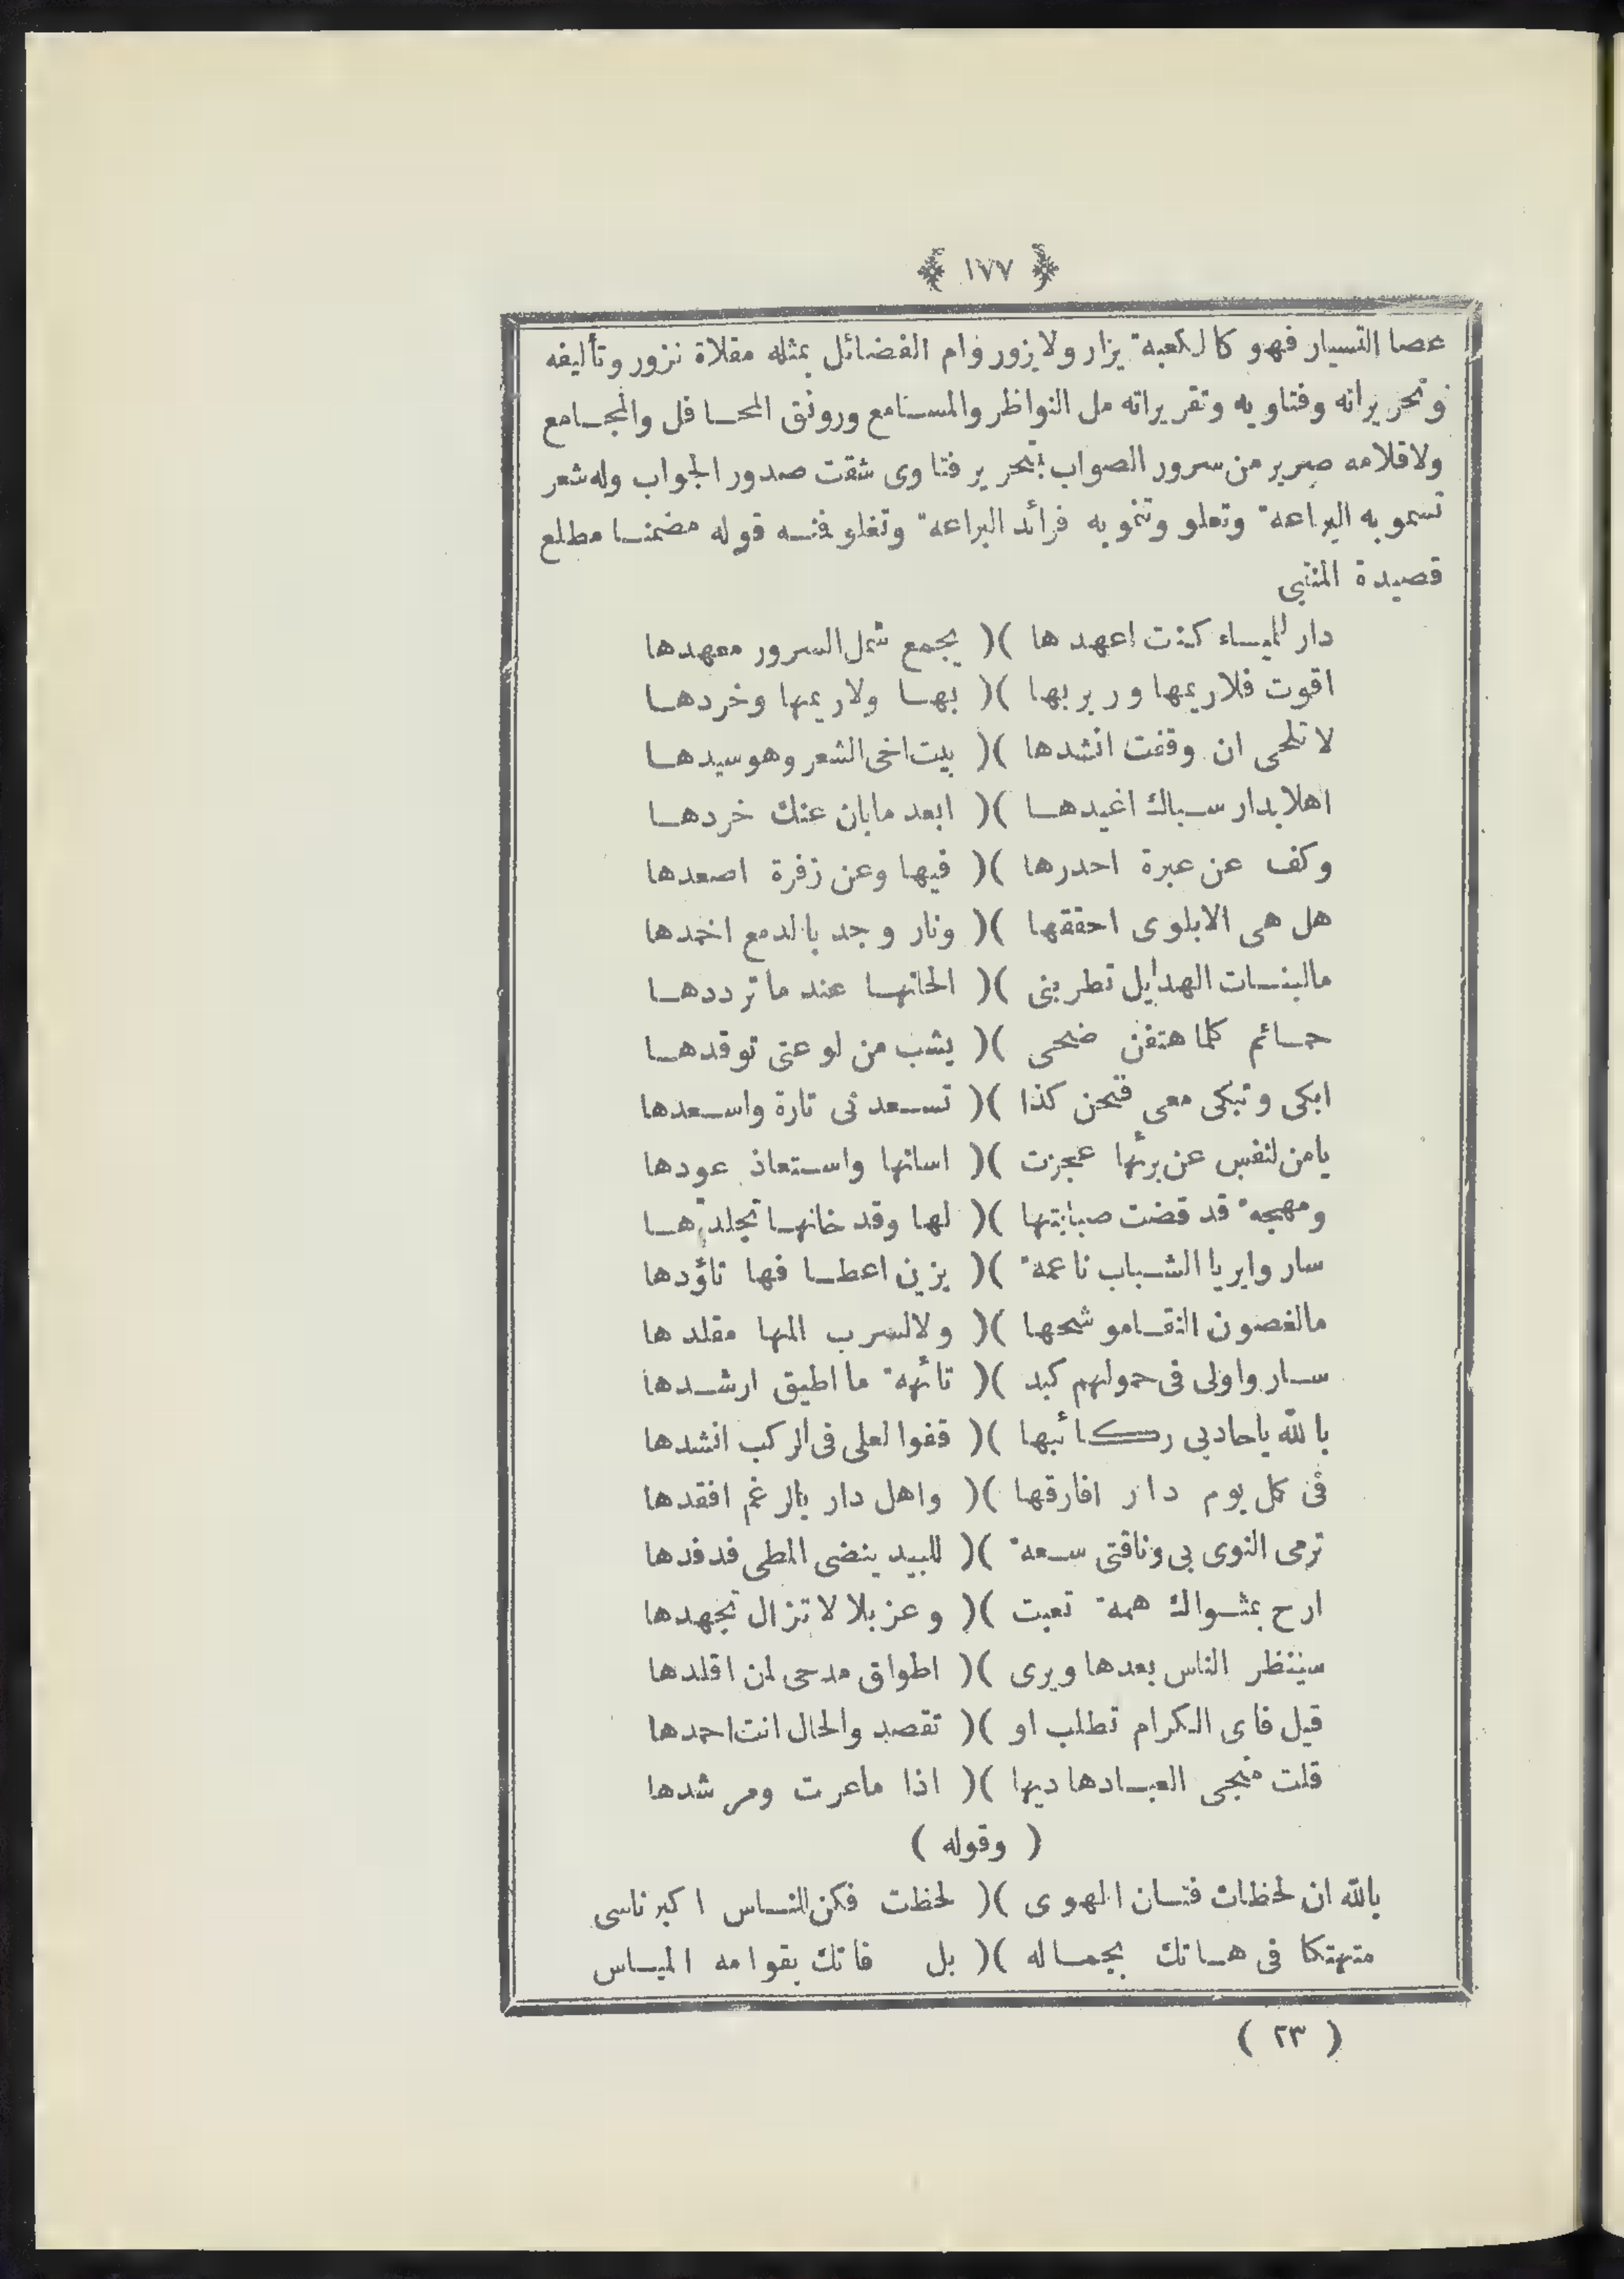 ﴿ ١٧٧ ﴾
عصا التسيار فهو كالكعبة يزار ولا يزور وام الفضائل بمثله مقلاة نزور وتأليفه
وتحريراته وفتاويه وتقريراته مل النواظر والمسامع ورونق المحافل والمجامع
ولاقلامه صرير من سرور الصواب بتحرير فتاوى شقت صدور الجواب وله شعر
تسمو به البراعة وتعلو وتنمو به فرائد البراعة وتغلو فمنه قوله مضمنا مطلع
قصيدة المتنبي
دار لمياء كنت اعهدها )( يجمع شمل السرور معهدها
اقوت فلا ريمها وربربها )( بها ولا ريمها وخردها
لا تلحى ان وقفت انشدها )( بيت اخى الشعر وهو سيدها
اهلا بدار سباك اغيدها )( ابعد مابان عنك خردها
وكف عن عبرة احدرها )( فيها وعن زفرة اصعدها
هل هى الابلوى احققها )( ونار وجد بالدمع اخمدها
مالبنات الهديل تطربنى )( الحانها عند ما ترددها
حمائم كلما هتفن ضحى )( يشب من لوعتى توقدها
ابكى وتبكى معى فنحن كذا )( تسعدنى تارة واسعدها
يامن لنفس عن برئها عجزت )( اساتها واستعاذ عودها
ومهجة قد قضت صبابتها )( لها وقد خانها تجلدها
ساروا بريا الشباب ناعمة )( يزين اعطافها تاؤدها
مالغصون النقا موشحها )( ولالسرب المها مقلدها
ساروا ولى فى حمولهم كبد )( تائهة ما اطيق ارشدها
بالله ياحاديى ركائبها )( قفوا لعلى فى الركب انشدها
فى كل يوم دار افارقها )( واهل دار بالرغم افقدها
ترمى النوى بى وناقتى سعة )( للبيد ينضى المطى فدفدها
ارح بمثواك همة تعبت )( وعز بلا لا تزال تجهدها
سينظر الناس بعدها ويرى )( اطواق مدحى لمن اقلدها
قيل فاى الكرام تطلب او )( تقصد والحال انت احمدها
قلت منجى العباد هاديها )( اذا ماعرت ومرشدها
( وقوله )
بالله ان لحظات فتان الهوى )( لحظت فكن للناس اكبر ناسى
متهتكا فى هاتك بجماله )( بل فاتك بقوامه المياس
( ٢٣ )